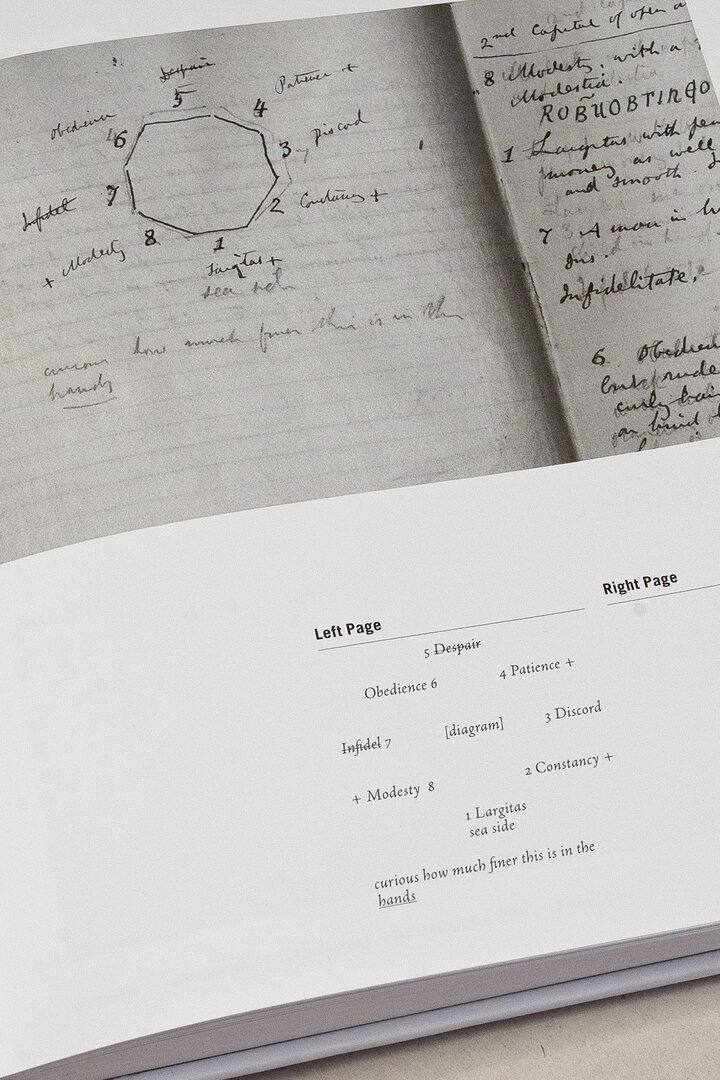 Despair
5
Patience +
4
obedience
6
3 Discord
Infidel
7
2 Constancy +
+ Modesty
8
1
Largitas +
sea side
curious how much finer this is in the
hands
2nd Capital of open a
8 Modesty. with a
Modestia.
ROBUOBTINGO
1 Largitas with
money as well
and smooth.
7 3 A man in
Ins.
Infidelitate.
6 Obedien
but prude
curly hair
an bind
Left Page
Right Page
5 Despair
Obedience 6
4 Patience +
Infidel 7
[diagram]
3 Discord
+ Modesty 8
2 Constancy +
1 Largitas
sea side
curious how much finer this is in the
hands